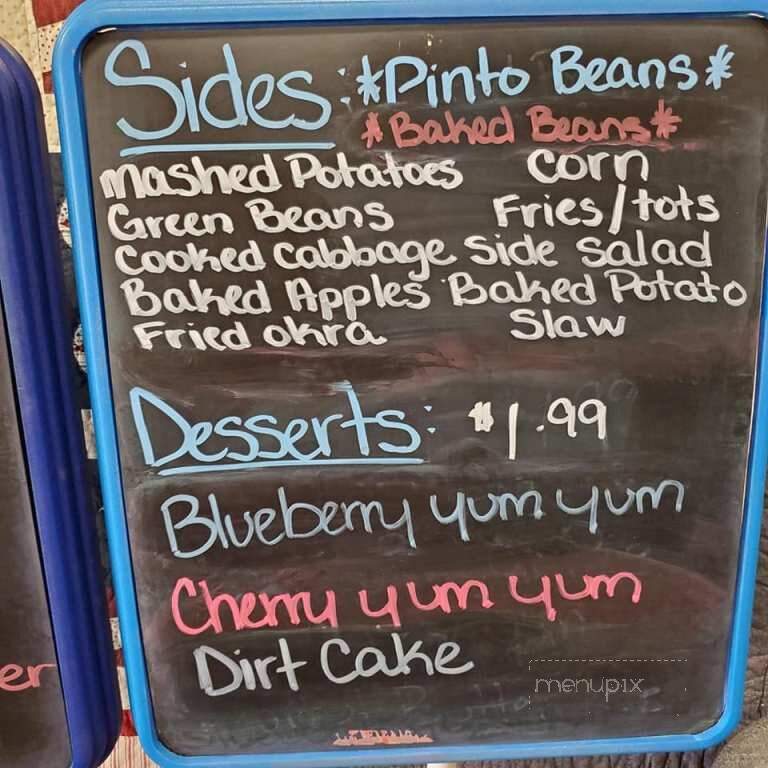 Sides: *Pinto Beans*
*Baked Beans*
Mashed Potatoes Corn
Green Beans Fries/tots
Cooked Cabbage Side Salad
Baked Apples Baked Potato
Fried Okra Slaw
Desserts: $1.99
Blueberry yum yum
Cherry yum yum
Dirt Cake
er
menupix